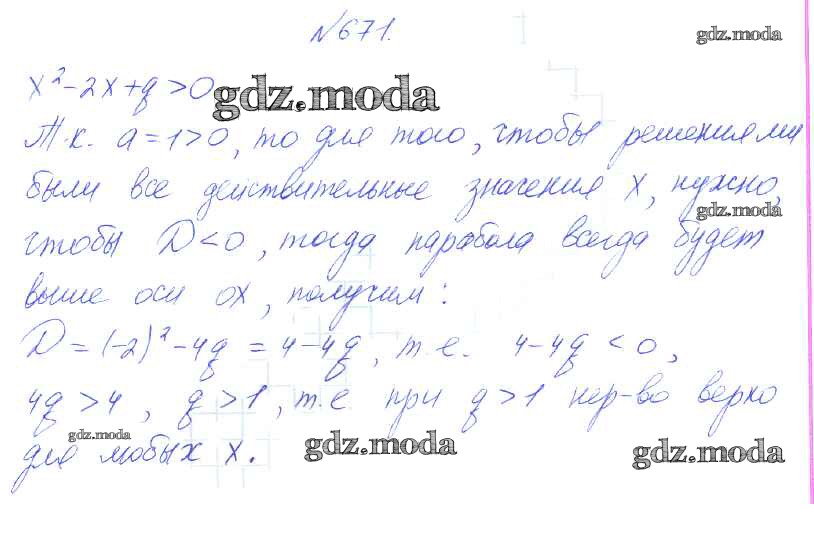 №671.
gdz.moda
x²-2x+q>0
gdz.moda
Т.к. a=1>0, то для того, чтобы решениями
были все действительные значения x, нужно,
gdz.moda
чтобы D<0, тогда парабола всегда будет
выше оси ox, получим:
D=(-2)²-4q=4-4q, т.е. 4-4q<0,
4q>4, q>1, т.е при q>1 нер-во верно
gdz.moda
для любых x.
gdz.moda
gdz.moda